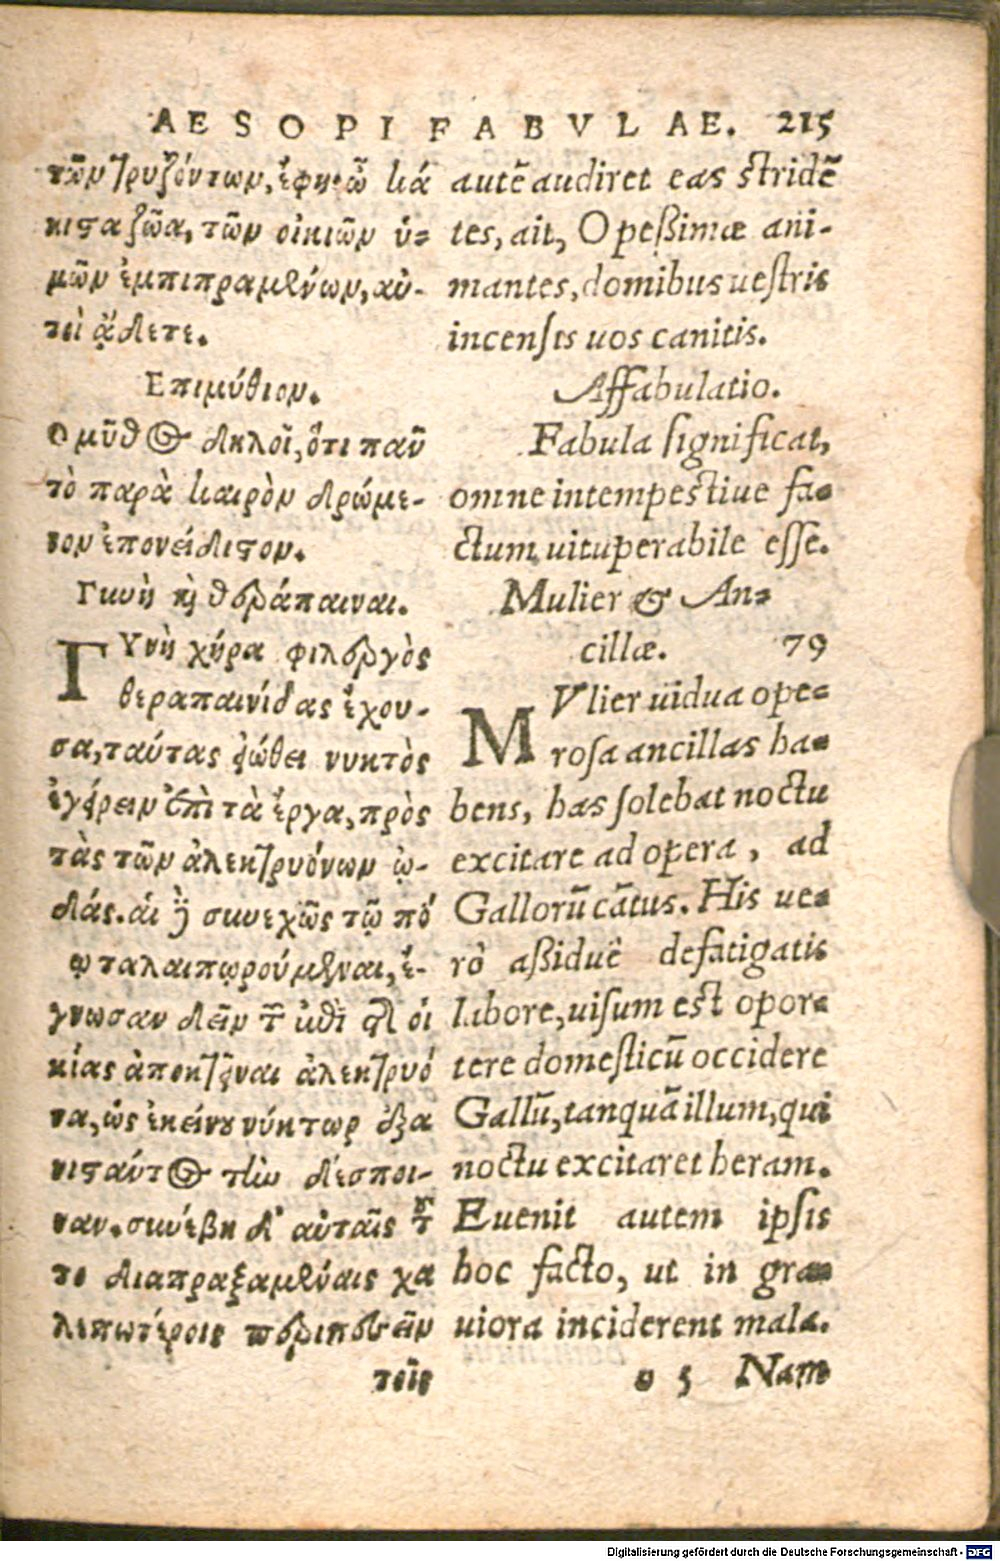 AESOPI FABVLAE. 215
τῶν τρυζόντων, ἔφη· ὦ κά
κιστα ζῶα, τῶν οἰκιῶν ὑ-
μῶν ἐμπιπραμένων, αὐ-
τοὶ ᾄδετε.
Επιμύθιον.
Ο μῦθος δηλοῖ, ὅτι πᾶν
τὸ παρὰ καιρὸν δρώμε-
νον ἐπονείδιστον.
Γυνὴ καὶ θεράπαιναι.
ΓΥνὴ χήρα φιλεργὸς
θεραπαινίδας ἔχου-
σα, ταύτας εἰώθει νυκτὸς
ἐγείρειν ἐπὶ τὰ ἔργα, πρὸς
τὰς τῶν ἀλεκτρυόνων ᾠ-
δάς. αἱ δὲ συνεχῶς τῷ πό
νῳ ταλαιπωρούμεναι, ἔ-
γνωσαν δεῖν τὸν ἐπὶ τῆς οἰ
κίας ἀποκτεῖναι ἀλεκτρυό
να, ὡς ἐκείνου νύκτωρ ἐξα
νιστάντος τὴν δέσποι-
ναν. συνέβη δ' αὐταῖς τοῦ
το διαπραξαμέναις χα
λεπωτέροις περιπεσεῖν
τοῖς
autē audiret eas stridē
tes, ait, O peßimæ ani-
mantes, domibus uestris
incensis uos canitis.
Affabulatio.
Fabula significat,
omne intempestiue fa-
ctum uituperabile esse.
Mulier & An-
cillæ. 79
MVlier uidua ope-
rosa ancillas ha-
bens, has solebat noctu
excitare ad opera, ad
Gallorū cātus. His ue-
rò aßiduè defatigatis
labore, uisum est opor-
tere domesticū occidere
Gallū, tanquā illum, qui
noctu excitaret heram.
Euenit autem ipsis
hoc facto, ut in gra-
uiora inciderent mala.
o 5 Nam
Digitalisierung gefördert durch die Deutsche Forschungsgemeinschaft - DFG